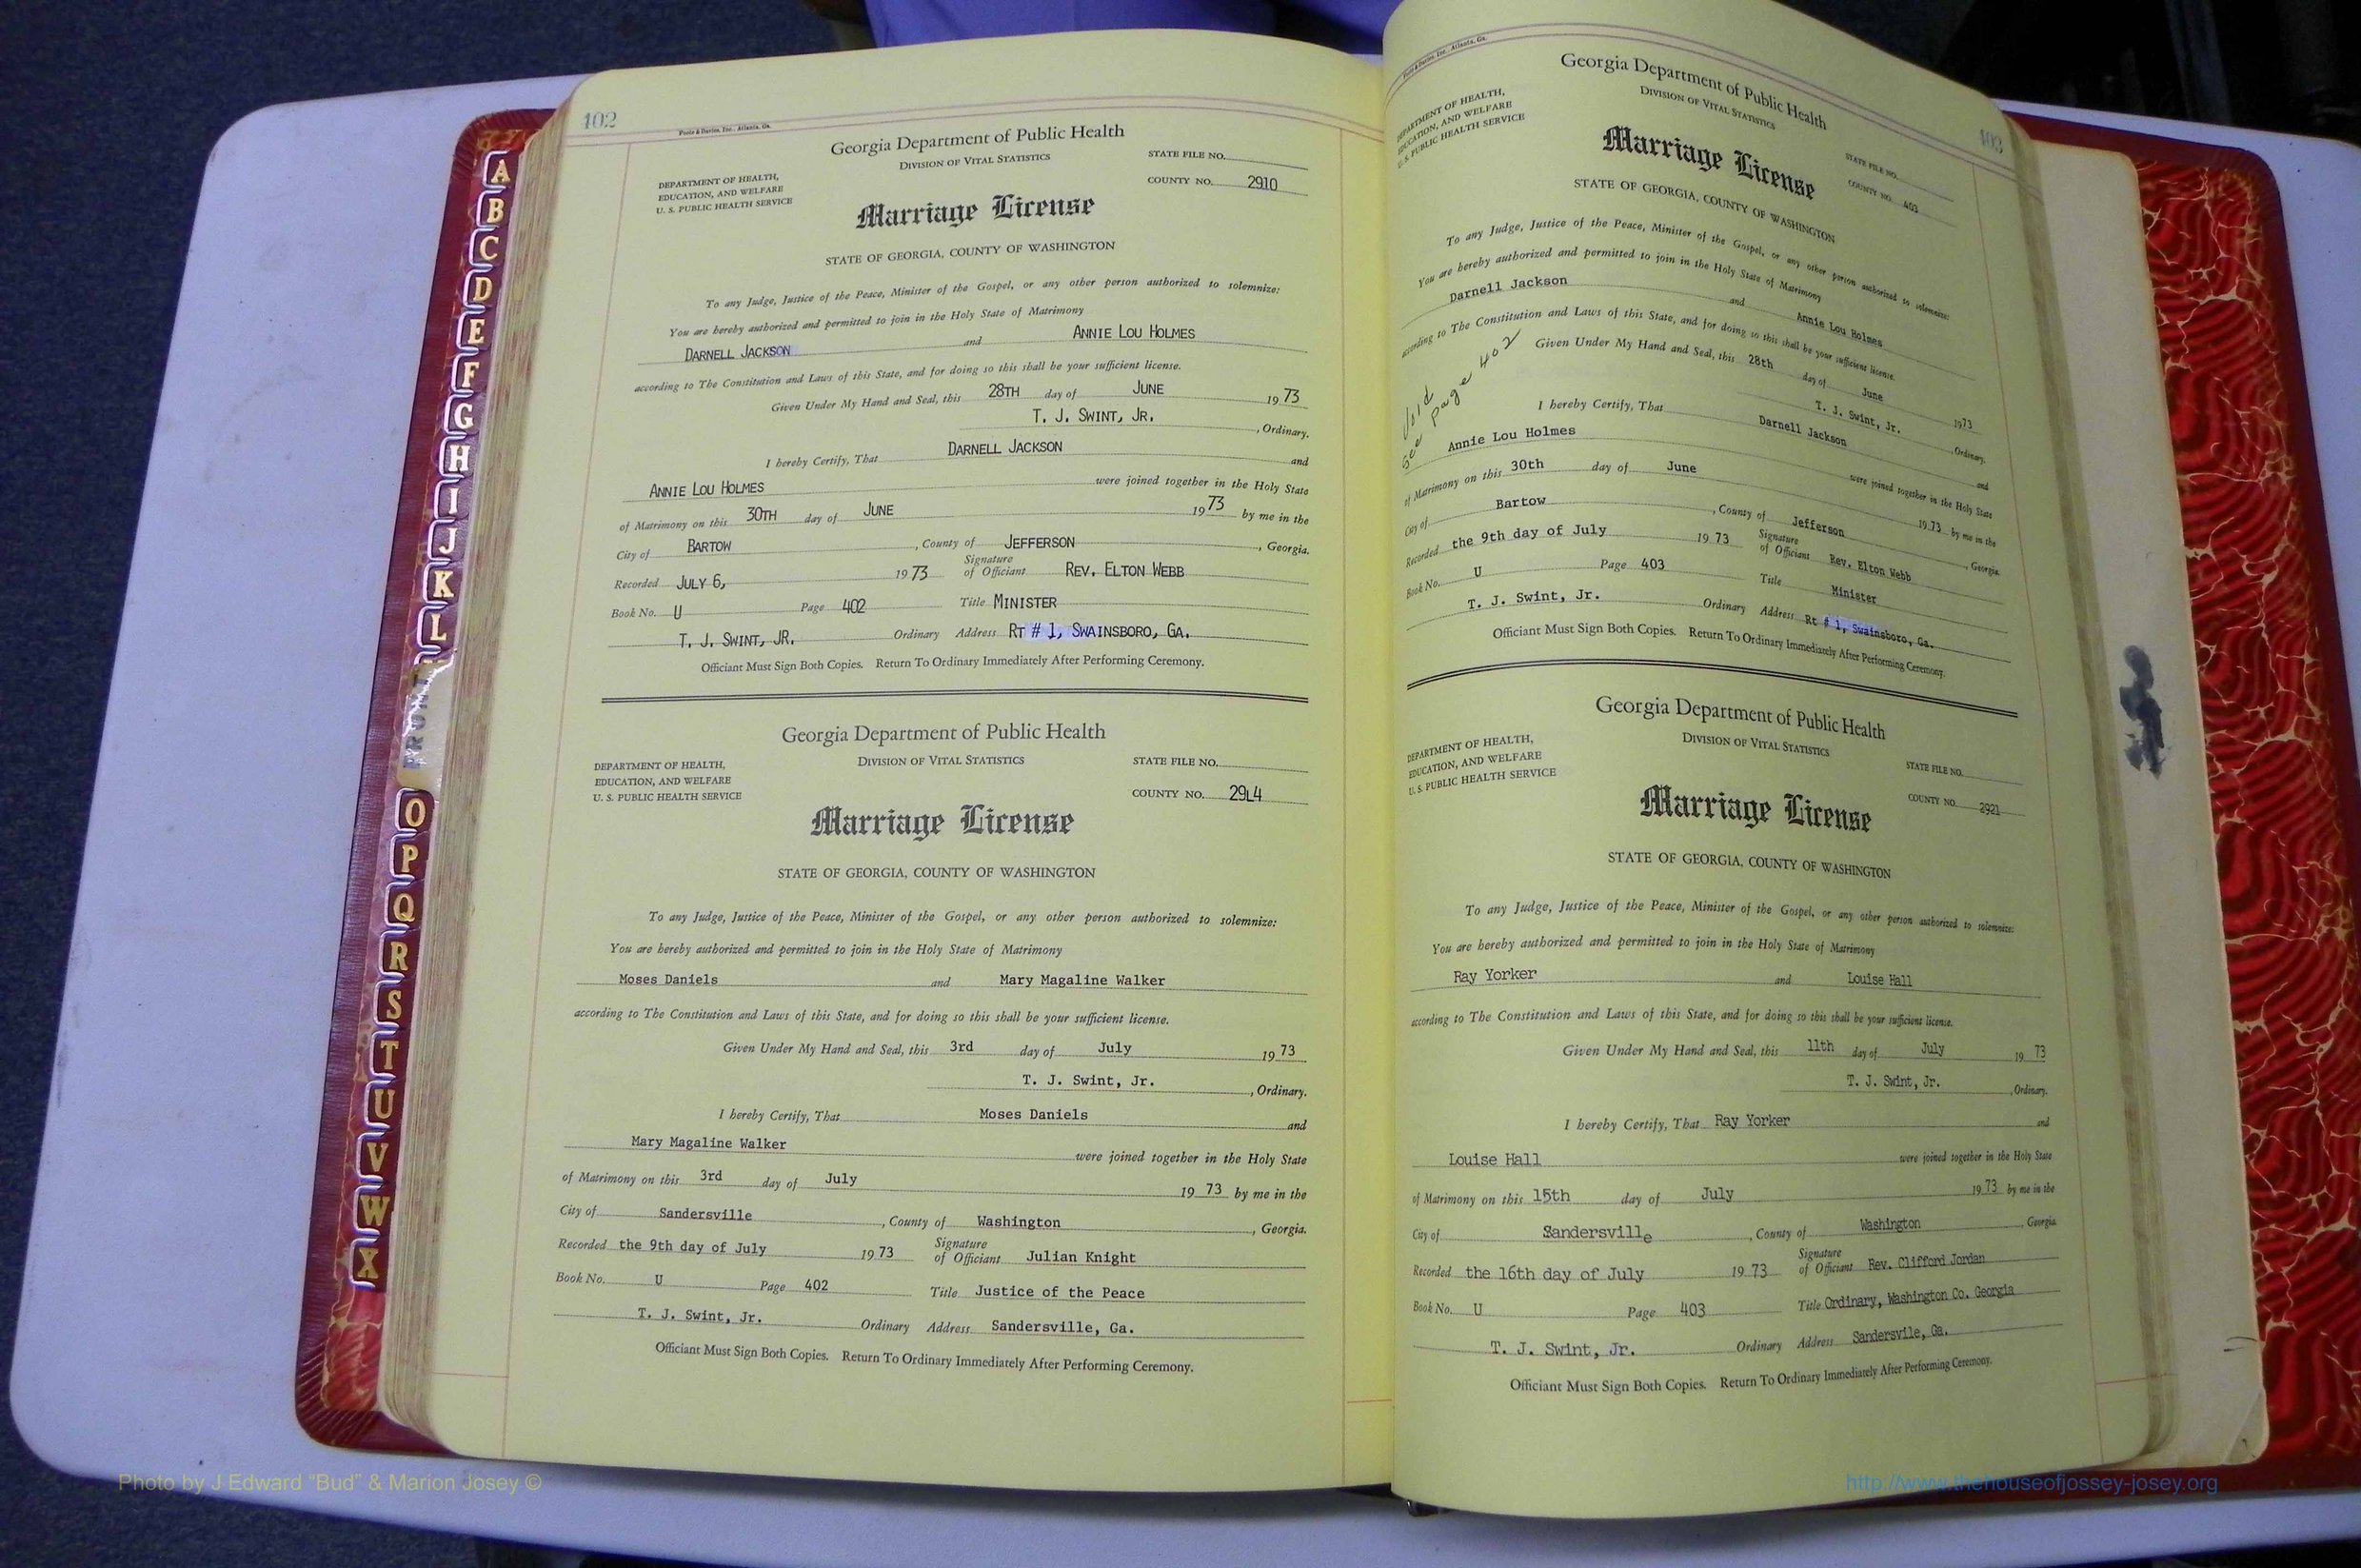 402
Foote & Davies, Inc., Atlanta, Ga.
Georgia Department of Public Health
DIVISION OF VITAL STATISTICS
DEPARTMENT OF HEALTH,
EDUCATION, AND WELFARE
U. S. PUBLIC HEALTH SERVICE
STATE FILE NO.
COUNTY NO. 2910
Marriage License
STATE OF GEORGIA, COUNTY OF WASHINGTON
To any Judge, Justice of the Peace, Minister of the Gospel, or any other person authorized to solemnize:
You are hereby authorized and permitted to join in the Holy State of Matrimony
DARNELL JACKSON and ANNIE LOU HOLMES
according to The Constitution and Laws of this State, and for doing so this shall be your sufficient license.
Given Under My Hand and Seal, this 28TH day of JUNE 1973
T. J. SWINT, JR. , Ordinary.
I hereby Certify, That DARNELL JACKSON and
ANNIE LOU HOLMES were joined together in the Holy State
of Matrimony on this 30TH day of JUNE 1973 by me in the
City of BARTOW , County of JEFFERSON , Georgia.
Recorded JULY 6, 1973 Signature of Officiant REV. ELTON WEBB
Book No. U Page 402 Title MINISTER
T. J. SWINT, JR. Ordinary Address RT # 1, SWAINSBORO, GA.
Officiant Must Sign Both Copies. Return To Ordinary Immediately After Performing Ceremony.
Georgia Department of Public Health
DIVISION OF VITAL STATISTICS
DEPARTMENT OF HEALTH,
EDUCATION, AND WELFARE
U. S. PUBLIC HEALTH SERVICE
STATE FILE NO.
COUNTY NO. 29L4
Marriage License
STATE OF GEORGIA, COUNTY OF WASHINGTON
To any Judge, Justice of the Peace, Minister of the Gospel, or any other person authorized to solemnize:
You are hereby authorized and permitted to join in the Holy State of Matrimony
Moses Daniels and Mary Magaline Walker
according to The Constitution and Laws of this State, and for doing so this shall be your sufficient license.
Given Under My Hand and Seal, this 3rd day of July 1973
T. J. Swint, Jr. , Ordinary.
I hereby Certify, That Moses Daniels and
Mary Magaline Walker were joined together in the Holy State
of Matrimony on this 3rd day of July 1973 by me in the
City of Sandersville , County of Washington , Georgia.
Recorded the 9th day of July 1973 Signature of Officiant Julian Knight
Book No. U Page 402 Title Justice of the Peace
T. J. Swint, Jr. Ordinary Address Sandersville, Ga.
Officiant Must Sign Both Copies. Return To Ordinary Immediately After Performing Ceremony.
403
Foote & Davies, Inc., Atlanta, Ga.
Georgia Department of Public Health
DIVISION OF VITAL STATISTICS
DEPARTMENT OF HEALTH,
EDUCATION, AND WELFARE
U. S. PUBLIC HEALTH SERVICE
STATE FILE NO.
COUNTY NO. 403
Marriage License
STATE OF GEORGIA, COUNTY OF WASHINGTON
To any Judge, Justice of the Peace, Minister of the Gospel, or any other person authorized to solemnize:
You are hereby authorized and permitted to join in the Holy State of Matrimony
Darnell Jackson and Annie Lou Holmes
according to The Constitution and Laws of this State, and for doing so this shall be your sufficient license.
Void
See page 402
Given Under My Hand and Seal, this 28th day of June 1973
T. J. Swint, Jr. , Ordinary.
I hereby Certify, That Darnell Jackson and
Annie Lou Holmes were joined together in the Holy State
of Matrimony on this 30th day of June 1973 by me in the
City of Bartow , County of Jefferson , Georgia.
Recorded the 9th day of July 1973 Signature of Officiant Rev. Elton Webb
Book No. U Page 403 Title Minister
T. J. Swint, Jr. Ordinary Address Rt # 1, Swainsboro, Ga.
Officiant Must Sign Both Copies. Return To Ordinary Immediately After Performing Ceremony.
Georgia Department of Public Health
DIVISION OF VITAL STATISTICS
DEPARTMENT OF HEALTH,
EDUCATION, AND WELFARE
U. S. PUBLIC HEALTH SERVICE
STATE FILE NO.
COUNTY NO. 2921
Marriage License
STATE OF GEORGIA, COUNTY OF WASHINGTON
To any Judge, Justice of the Peace, Minister of the Gospel, or any other person authorized to solemnize:
You are hereby authorized and permitted to join in the Holy State of Matrimony
Ray Yorker and Louise Hall
according to The Constitution and Laws of this State, and for doing so this shall be your sufficient license.
Given Under My Hand and Seal, this 11th day of July 1973
T. J. Swint, Jr. , Ordinary.
I hereby Certify, That Ray Yorker and
Louise Hall were joined together in the Holy State
of Matrimony on this 15th day of July 1973 by me in the
City of Sandersville , County of Washington , Georgia
Recorded the 16th day of July 1973 Signature of Officiant Rev. Clifford Jordan
Book No. U Page 403 Title Ordinary, Washington Co. Georgia
T. J. Swint, Jr. Ordinary Address Sandersvile, Ga.
Officiant Must Sign Both Copies. Return To Ordinary Immediately After Performing Ceremony.
A
B
C
D
E
F
G
H
I
J
K
L
FRONT
O
P
Q
R
S
T
U
V
W
X
Photo by J Edward “Bud” & Marion Josey ©
http://www.thehouseofjossey-josey.org